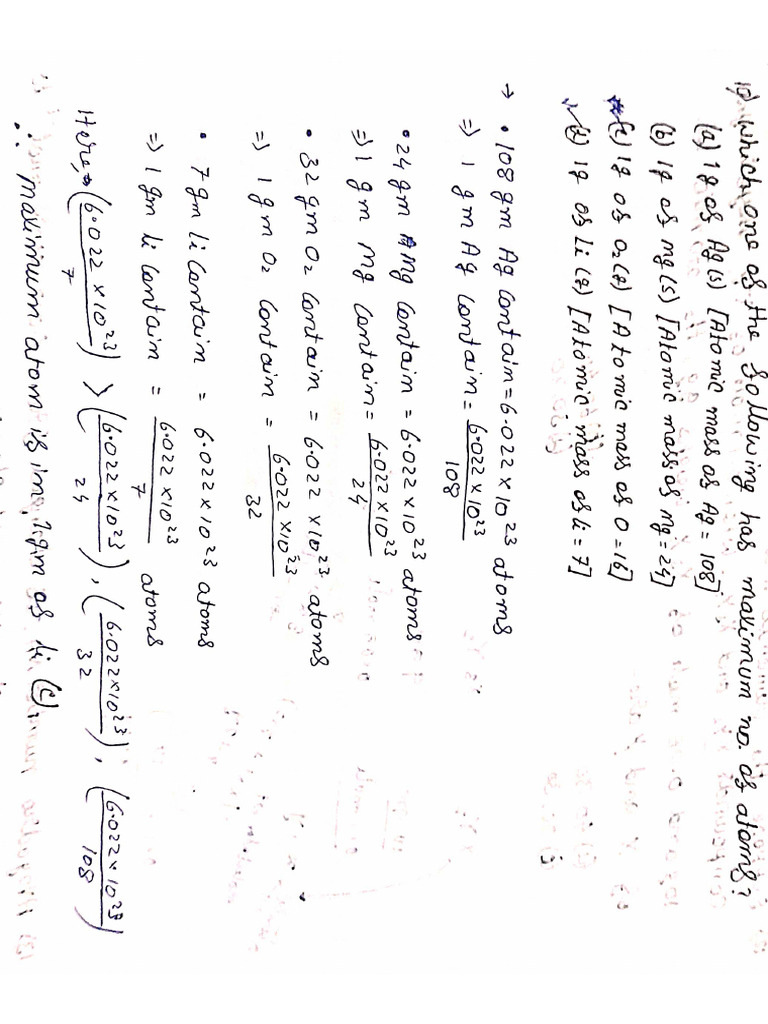 10) Which one of the following has maximum no. of atoms?
(a) 1g of Ag(s) [Atomic mass of Ag = 108]
(b) 1g of mg(s) [Atomic mass of mg = 24]
(c) 1g of O₂(g) [Atomic mass of O = 16]
(d) 1g of li(s) [Atomic mass of li = 7]
→ • 108 gm Ag contain = 6.022 × 10²³ atoms
⇒ 1 gm Ag contain = 6.022 × 10²³ / 108
• 24 gm Mg contain = 6.022 × 10²³ atoms
⇒ 1 gm mg contain = 6.022 × 10²³ / 24
• 32 gm O₂ contain = 6.022 × 10²³ atoms
⇒ 1 gm O₂ contain = 6.022 × 10²³ / 32
• 7 gm li contain = 6.022 × 10²³ atoms
⇒ 1 gm li contain = 6.022 × 10²³ / 7 atoms
Here, (6.022 × 10²³ / 7) > (6.022 × 10²³ / 24), (6.022 × 10²³ / 32), (6.022 × 10²³ / 108)
∴ maximum atom is in, 1gm of li (c).